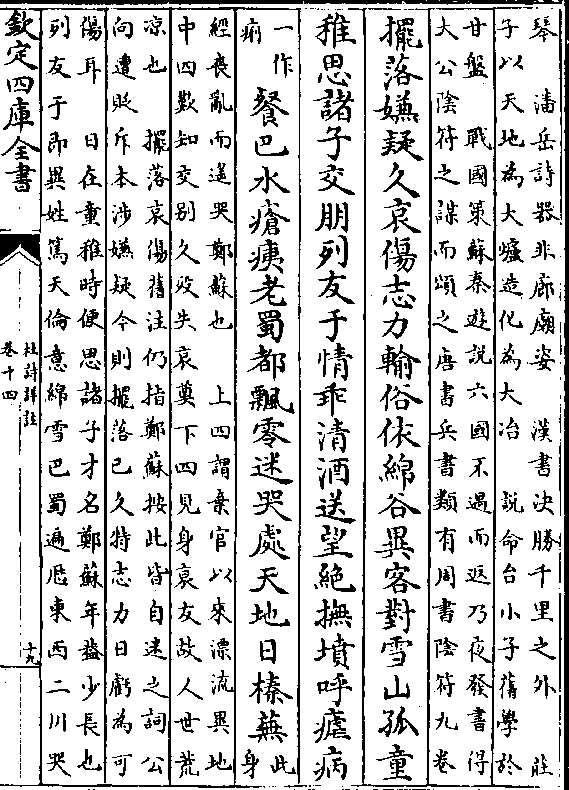 琴　潘岳詩器非廊廟姿　漢書決勝千里之外　莊
子以天地為大爐造化為大冶　說命台小子舊學於
甘盤　戰國策蘇秦遊說六國不遇而返乃夜發書得
大公陰符之謀而頌之唐書兵書類有周書陰符九卷
擺落嫌疑久哀傷志力輸俗依綿谷異客對雪山孤童
稚思諸子交朋列友于情乖清酒送望絕撫墳呼瘧病
一作痢餐巴水瘡痍老蜀都飄零迷哭處天地日榛蕪此身
經喪亂而遙哭鄭蘇也　上四謂棄官以來漂流異地
中四歎知交別久歿失哀奠下四見身哀友故人世荒
涼也　擺落哀傷舊注仍指鄭蘇按此皆自述之詞公
向遭貶斥本涉嫌疑今則擺落已久特志力日虧為可
傷耳　日在童稚時便思諸子才名鄭蘇年並少長也
列友于即異姓篤天倫意綿雪巴蜀遍歷東西二川哭
欽定四庫全書
杜詩詳註
卷十四
十九